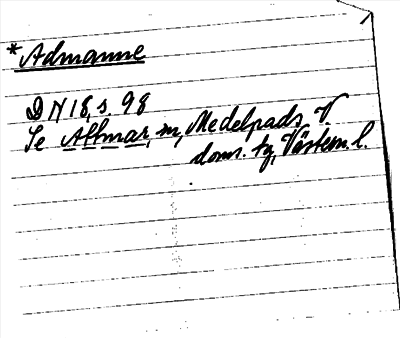 *Admanne
DN 18, s. 98
Se Allmar, m, Medelpads V.
doms. tg, Västern. l.